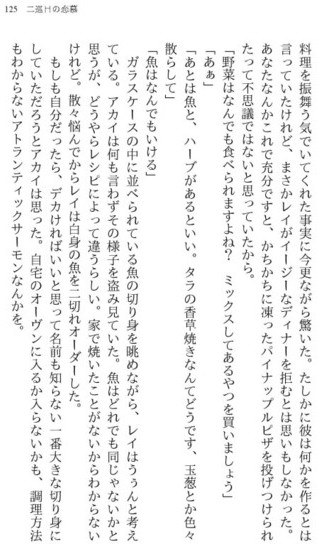 125 二巡目の恋慕
料理を振舞う気でいてくれた事実に今更ながら驚いた。たしかに彼は何かを作るとは
言っていたけれど、まさかレイがイージーなディナーを拒むとは思いもしなかった。
あなたなんかこれで充分ですと、かちかちに凍ったパイナップルピザを投げつけられ
たって不思議ではないと思っていたから。
「野菜はなんでも食べられますよね? ミックスしてあるやつを買いましょう」
「あぁ」
「あとは魚と、ハーブがあるといい。タラの香草焼きなんてどうです、玉葱とか色々
散らして」
「魚はなんでもいける」
ガラスケースの中に並べられている魚の切り身を眺めながら、レイはうぅんと考え
ている。アカイは何も言わずその様子を盗み見ていた。魚はどれでも同じじゃないかと
思うが、どうやらレシピによって違うらしい。家で焼いたことがないからわからない
けれど。散々悩んでからレイは白身の魚を二切れオーダーした。
もしも自分だったら、デカければいいと思って名前も知らない一番大きな切り身に
していただろうとアカイは思った。自宅のオーヴンに入るか入らないかも、調理方法
もわからないアトランティックサーモンなんかを。